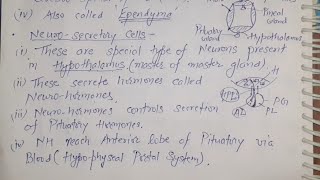 (iv) Also called Ependyma
Pineal
gland
Pituitary
gland
Hypothalamus
Neuro-Secretory Cells -
(i) These are special type of Neurons present
in Hypothalamus (master of master gland).
(ii) These secrete hormones called
Neuro-hormones.
(iii) Neuro-hormones controls secretion
of Pituatory Hormones.
AL
PL
(iv) NH reach Anterior lobe of Pituatory via
Blood (Hypo-physeal Portal System).